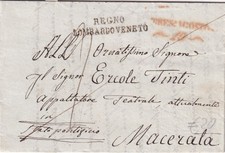 REGNO
LOMBARDO VENETO
All' Ornatissimo Signore
Il Signor Ercole Tinti
Appaltatore Teatrale attualmente
in
Stato pontificio Macerata